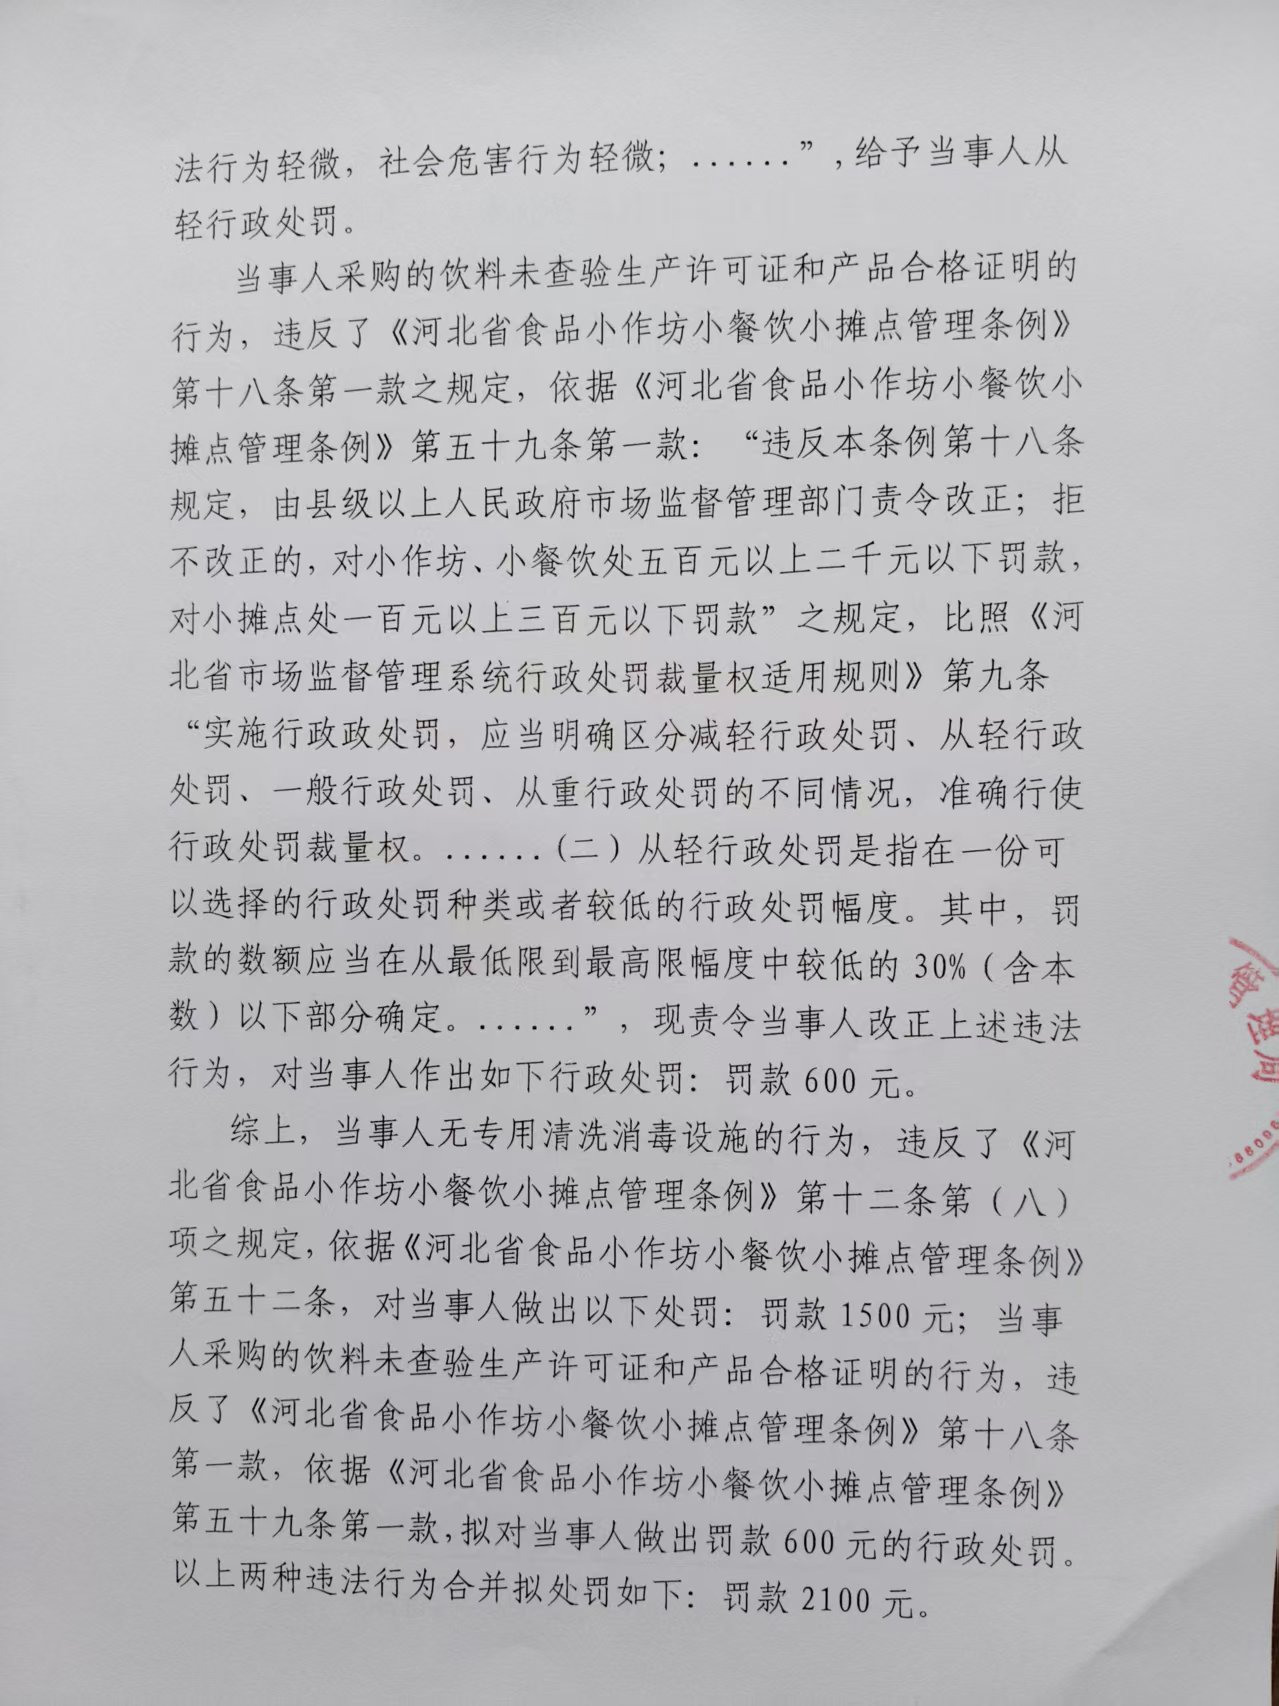 法行为轻微，社会危害行为轻微；......”，给予当事人从
轻行政处罚。
当事人采购的饮料未查验生产许可证和产品合格证明的
行为，违反了《河北省食品小作坊小餐饮小摊点管理条例》
第十八条第一款之规定，依据《河北省食品小作坊小餐饮小
摊点管理条例》第五十九条第一款：“违反本条例第十八条
规定，由县级以上人民政府市场监督管理部门责令改正；拒
不改正的，对小作坊、小餐饮处五百元以上二千元以下罚款，
对小摊点处一百元以上三百元以下罚款”之规定，比照《河
北省市场监督管理系统行政处罚裁量权适用规则》第九条
“实施行政政处罚，应当明确区分减轻行政处罚、从轻行政
处罚、一般行政处罚、从重行政处罚的不同情况，准确行使
行政处罚裁量权。......(二）从轻行政处罚是指在一份可
以选择的行政处罚种类或者较低的行政处罚幅度。其中，罚
款的数额应当在从最低限到最高限幅度中较低的30%（含本
数）以下部分确定。......”，现责令当事人改正上述违法
行为，对当事人作出如下行政处罚：罚款600元。
综上，当事人无专用清洗消毒设施的行为，违反了《河
北省食品小作坊小餐饮小摊点管理条例》第十二条第（八）
项之规定，依据《河北省食品小作坊小餐饮小摊点管理条例》
第五十二条，对当事人做出以下处罚：罚款1500元；当事
人采购的饮料未查验生产许可证和产品合格证明的行为，违
反了《河北省食品小作坊小餐饮小摊点管理条例》第十八条
第一款，依据《河北省食品小作坊小餐饮小摊点管理条例》
第五十九条第一款，拟对当事人做出罚款600元的行政处罚。
以上两种违法行为合并拟处罚如下：罚款2100元。
管理局